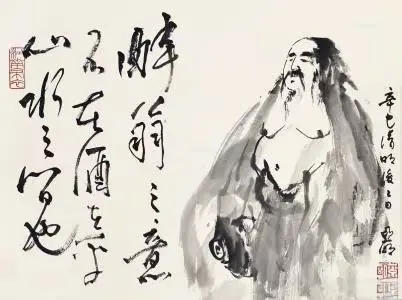 醉翁之意
不在酒在乎
山水之间也
辛巳清明後日